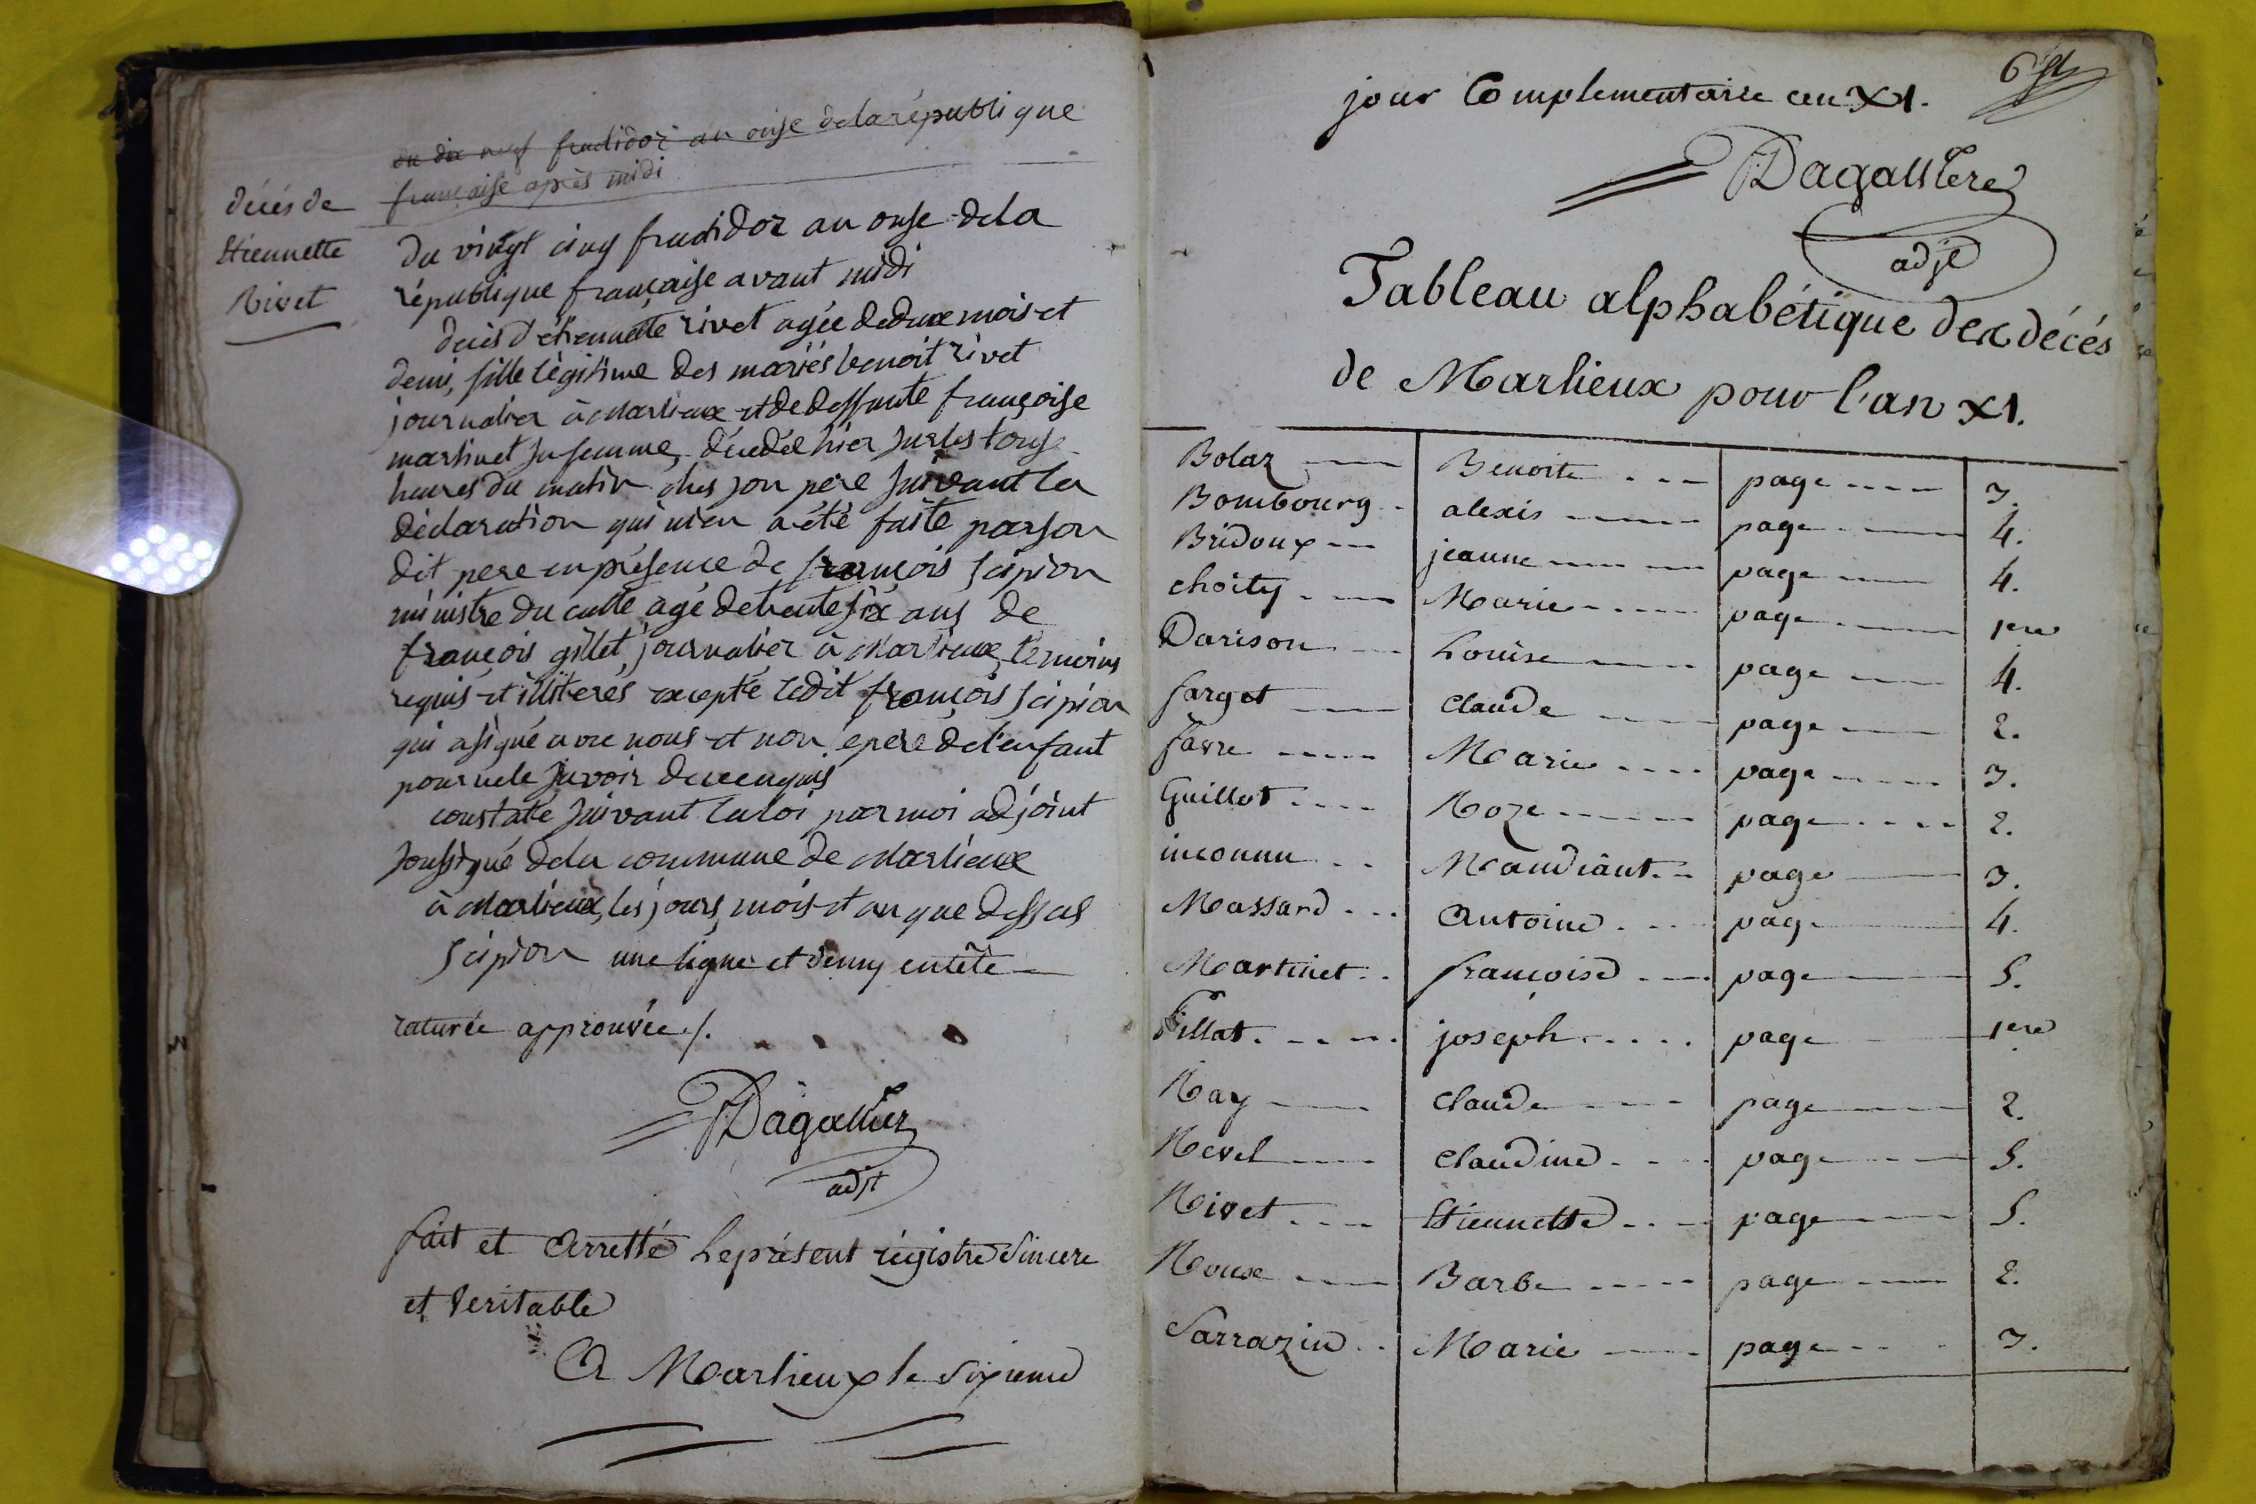 du dix neuf fructidor an onse dela république
française après midi
décés de
Etiennette
Rivet
Du vingt cinq fructidor an onse dela
république française avant midi
decès d'etiennette rivet agée dedeux mois et
demi, fille légitime des mariés benoit rivet
journalier à Marlieux et de deffunte françoise
martinet sa femme, décedée hier sur les
heures du matin ches son pere suivant la
déclaration qui m'en a été faite par son
dit pere en présence de françois scipion
ministre du culte agé detrente six ans de
françois gillet, journalier à Marlieux, temoins
requis et illiterés excepté ledit françois scipion
qui a signé avec nous et non le pere de l'enfant
pour ne le savoir de ce enquis
constaté suivant la loi par moi adjoint
soussigné dela commune de Marlieux
à Marlieux, les jours, mois et an que dessus
scipion une ligne et demy entête
raturée approuvée /.
Dagallier
adjt
fait et Arretté Le présent régistre Sincere
et Veritable
A Marlieux le Sixieme
6
jour Complementaire an XI.
Dagallier
adjt
Tableau alphabétique des décés
de Marlieux pour l'an XI.
Bolaz Benoite page 3.
Bombourg alexis page 4.
Bridoux jeanne page 4.
Choity Marie page 1ere
Darison Louise page 4.
farget Claude page 2.
favre Marie page 3.
Guillot Roze page 2.
inconnu Mandiant page 3.
Massard Antoine page 4.
Martinet françoise page 5.
Pillat joseph page 1ere
Ray Claude page 2.
Revel Claudine page 5.
Rivet Etiennette page 5.
Roux Barbe page 2.
Sarrazin Marie page 3.